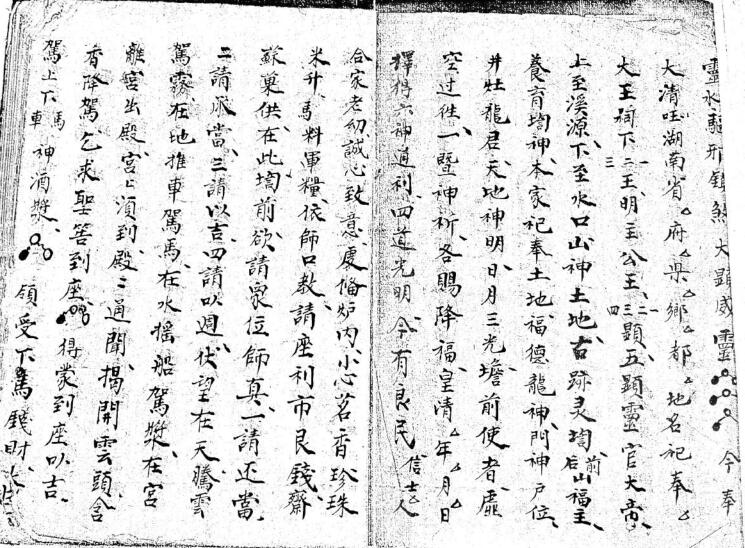 靈水驅邪鎮煞大顯威靈 今奉
大清囯湖南省△府△县△鄉△都△地名祀奉△
大王祠下一二三王明王公王一二三四顯五顯靈官大帝
上至溪源下至水口山神土地古跡灵墈前后山福主
養育墈神本家祀奉土地福德龍神門神户位
井灶龍君天地神明日月三光簷前使者虛
空过徃一暨神祈各賜降福皇清△年△月△日
擇得六神通利四道光明今有良民信士△人
合家老幼誠心致意處偹炉内小心茗香珍珠
米升馬料軍糧依師口教請座利市艮錢齋
蘇菓供在此墈前欲請衆位師真一請还當
二請承當三請以吉四請以週伏望在天騰雲
駕霧在地推車駕馬在水摇船駕槳在宮
離宮出殿宮宮湏到殿殿通聞揭開雲頭含
香降駕乞求聖筶到座 得蒙到座以吉
駕上下馬車神酒漿 領受下馬錢財